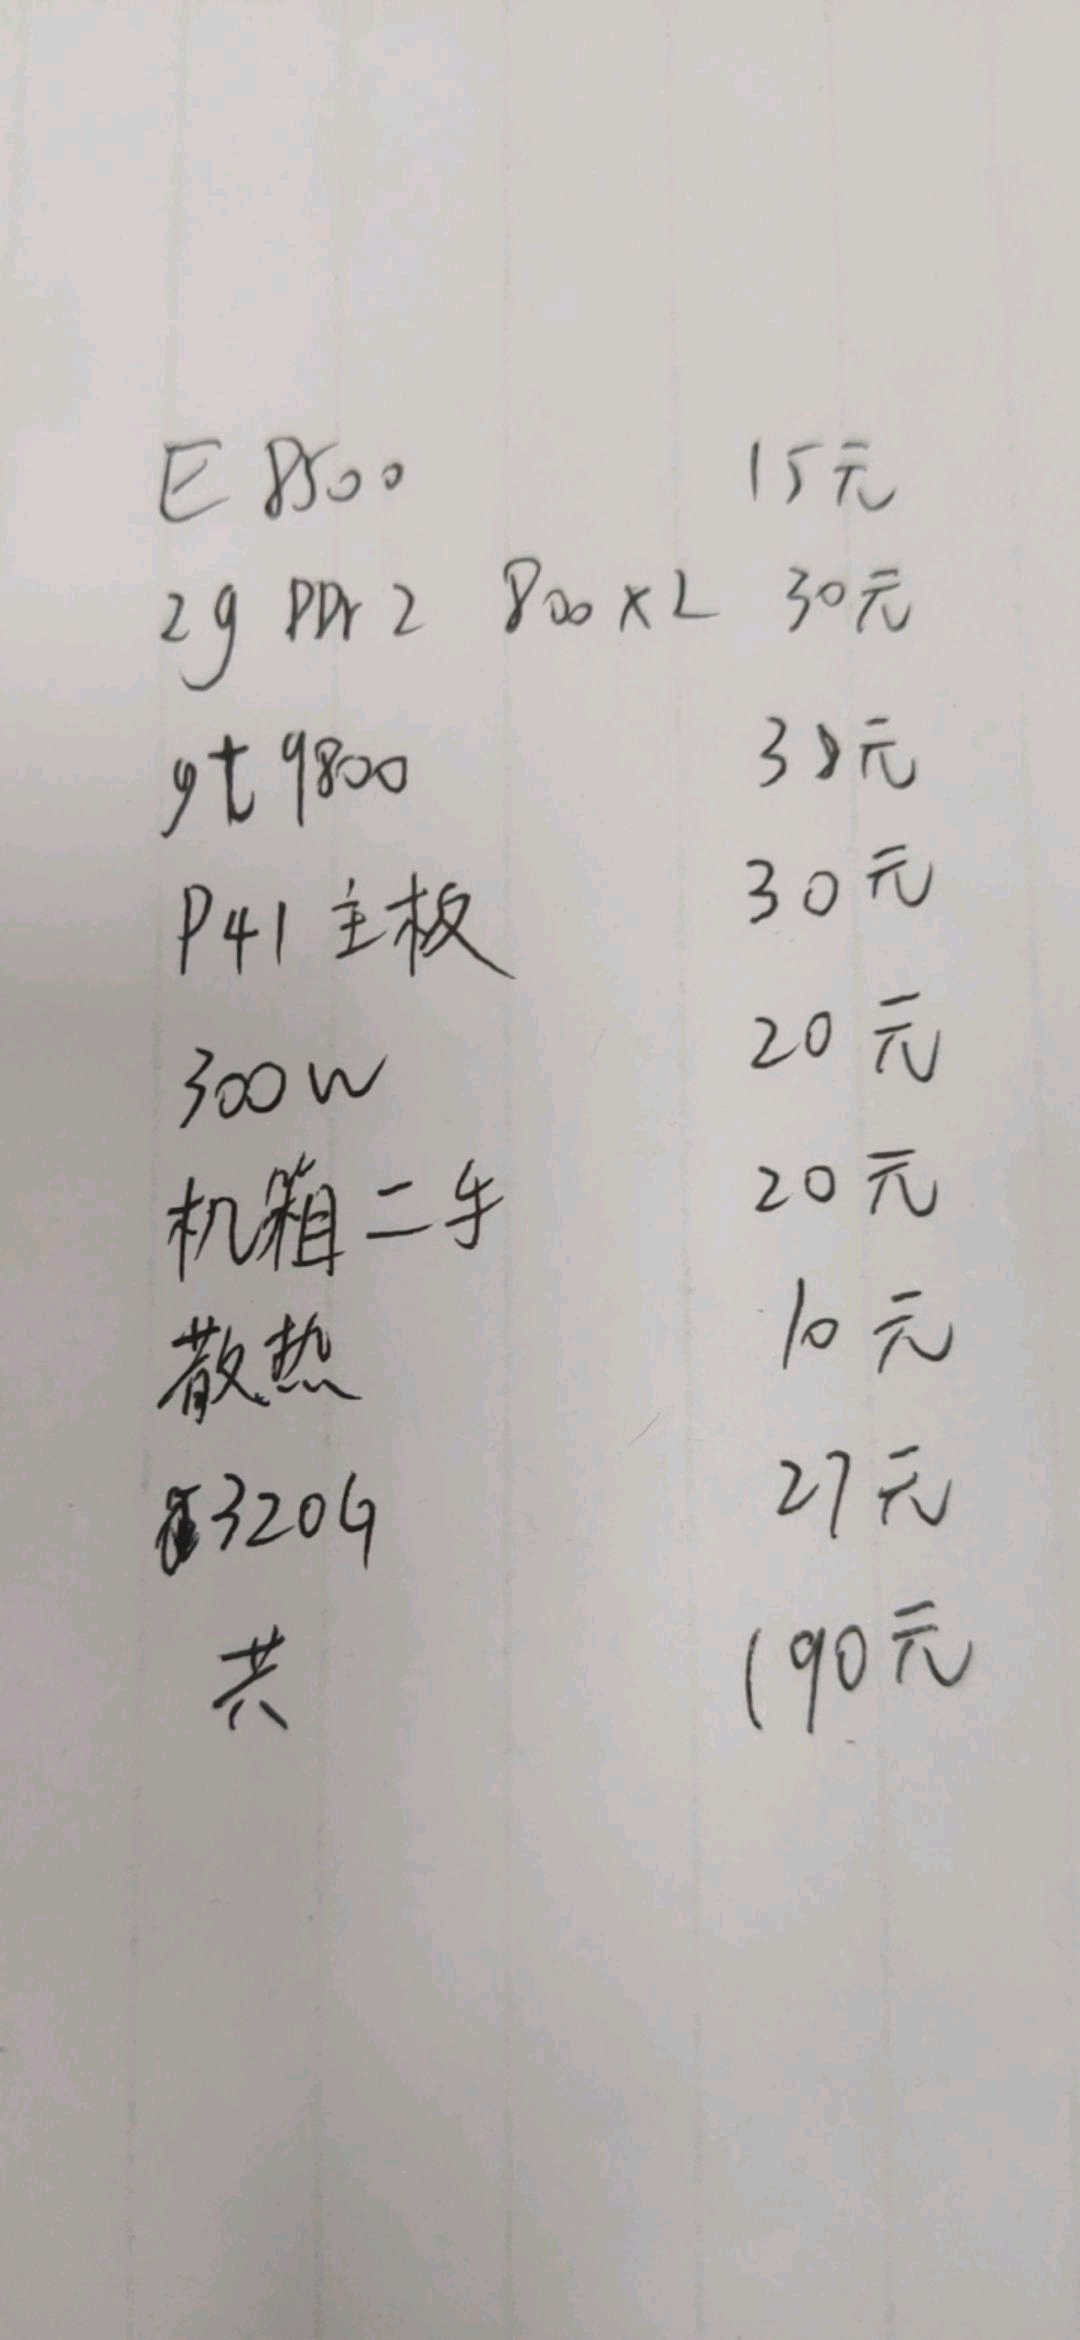 E 8500 15元
2g DDr2 800×2 30元
gt 9800 38元
P41 主板 30元
300W 20元
机箱二手 20元
散热 10元
320G 27元
共 190元